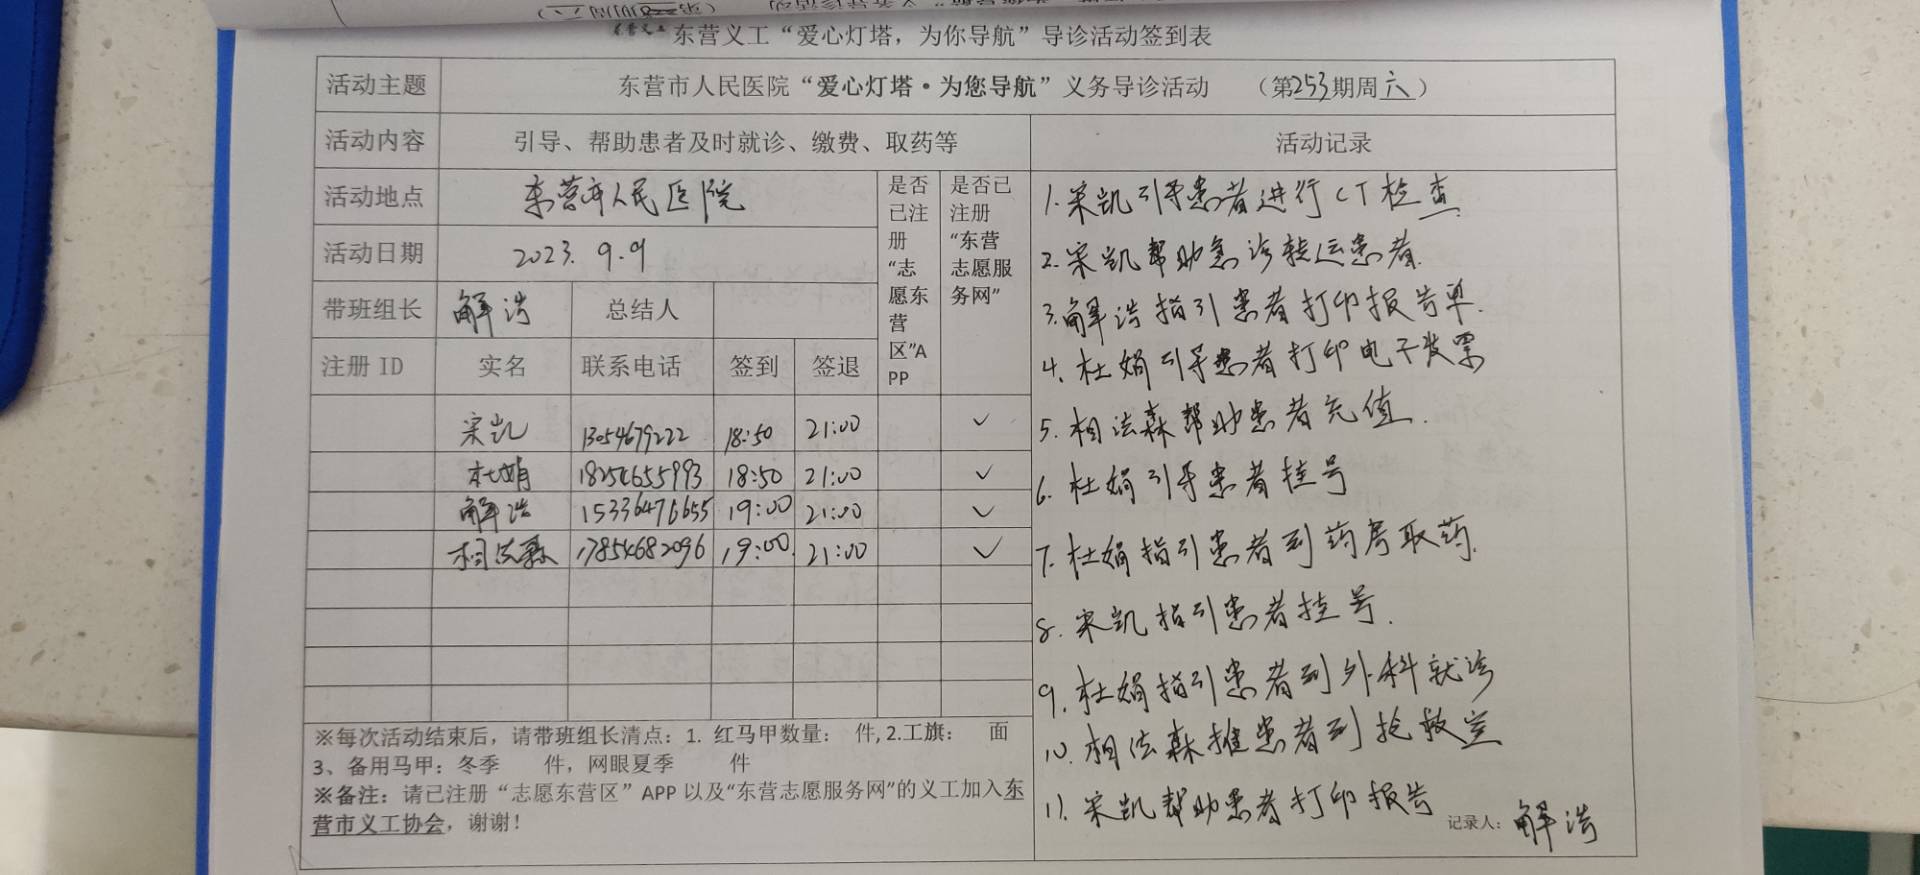 东营义工“爱心灯塔，为你导航”导诊活动签到表
活动主题 东营市人民医院“爱心灯塔·为您导航”义务导诊活动 （第253期周六）
活动内容 引导、帮助患者及时就诊、缴费、取药等 活动记录
活动地点 东营市人民医院
活动日期 2023.9.9
带班组长 解浩 总结人
注册 ID 实名 联系电话 签到 签退
是否已注册“志愿东营区”APP
是否已注册“东营志愿服务网”
宋凯 13054679222 18:50 21:00 ✓
杜娟 18254655993 18:50 21:00 ✓
解浩 15336476655 19:00 21:00 ✓
相法森 17854682096 19:00 21:00 ✓
※每次活动结束后，请带班组长清点：1. 红马甲数量： 件, 2.工旗： 面
3、备用马甲：冬季 件，网眼夏季 件
※备注：请已注册“志愿东营区”APP 以及“东营志愿服务网”的义工加入东
营市义工协会，谢谢！
1.宋凯引导患者进行CT检查.
2.宋凯帮助急诊转运患者.
3.解浩指引患者打印报告单.
4.杜娟引导患者打印电子发票
5.相法森帮助患者充值.
6.杜娟引导患者挂号
7.杜娟指引患者到药房取药.
8.宋凯指引患者挂号.
9.杜娟指引患者到外科就诊
10.相法森推患者到抢救室
11.宋凯帮助患者打印报告
记录人：解浩